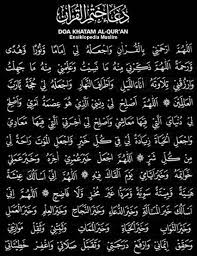 دعاء ختم القرآن
DOA KHATAM AL-QUR'AN
Ensiklopedia Muslim
اَللّٰهُمَّ ارْحَمْنِيْ بِالْقُرْاٰنِ وَاجْعَلْهُ لِيْ اِمَامًا وَنُوْرًا وَهُدًى
وَرَحْمَةً اَللّٰهُمَّ ذَكِّرْنِيْ مِنْهُ مَا نَسِيْتُ وَعَلِّمْنِيْ مِنْهُ مَا جَهِلْتُ
وَارْزُقْنِيْ تِلَاوَتَهُ اٰنَاءَ اللَّيْلِ وَاَطْرَافَ النَّهَارِ وَاجْعَلْهُ لِيْ حُجَّةً يَا رَبَّ
الْعَالَمِيْنَ اَللّٰهُمَّ اَصْلِحْ لِيْ دِيْنِيَ الَّذِيْ هُوَ عِصْمَةُ اَمْرِيْ وَاَصْلِحْ
لِيْ دُنْيَايَ الَّتِيْ فِيْهَا مَعَاشِيْ وَاَصْلِحْ لِيْ اٰخِرَتِيَ الَّتِيْ فِيْهَا مَعَادِيْ
وَاجْعَلِ الْحَيَاةَ زِيَادَةً لِيْ فِيْ كُلِّ خَيْرٍ وَاجْعَلِ الْمَوْتَ رَاحَةً لِيْ
مِنْ كُلِّ شَرٍّ اَللّٰهُمَّ اجْعَلْ خَيْرَ عُمْرِيْ اٰخِرَهُ وَخَيْرَ عَمَلِيْ
خَوَاتِمَهُ وَخَيْرَ اَيَّامِيْ يَوْمَ اَلْقَاكَ فِيْهِ اَللّٰهُمَّ اِنِّيْ اَسْأَلُكَ عِيْشَةً
هَنِيَّةً وَمِيْتَةً سَوِيَّةً وَمَرَدًّا غَيْرَ مُخْزٍ وَلَا فَاضِحٍ اَللّٰهُمَّ اِنِّيْ
اَسْأَلُكَ خَيْرَ الْمَسْأَلَةِ وَخَيْرَ الدُّعَاءِ وَخَيْرَ النَّجَاحِ وَخَيْرَ الْعِلْمِ وَخَيْرَ الْعَمَلِ
وَخَيْرَ الثَّوَابِ وَخَيْرَ الْحَيَاةِ وَخَيْرَ الْمَمَاتِ وَثَبِّتْنِيْ وَثَقِّلْ مَوَازِيْنِيْ
وَحَقِّقْ اِيْمَانِيْ وَارْفَعْ دَرَجَتِيْ وَتَقَبَّلْ صَلَاتِيْ وَاغْفِرْ خَطِيْئَاتِيْ